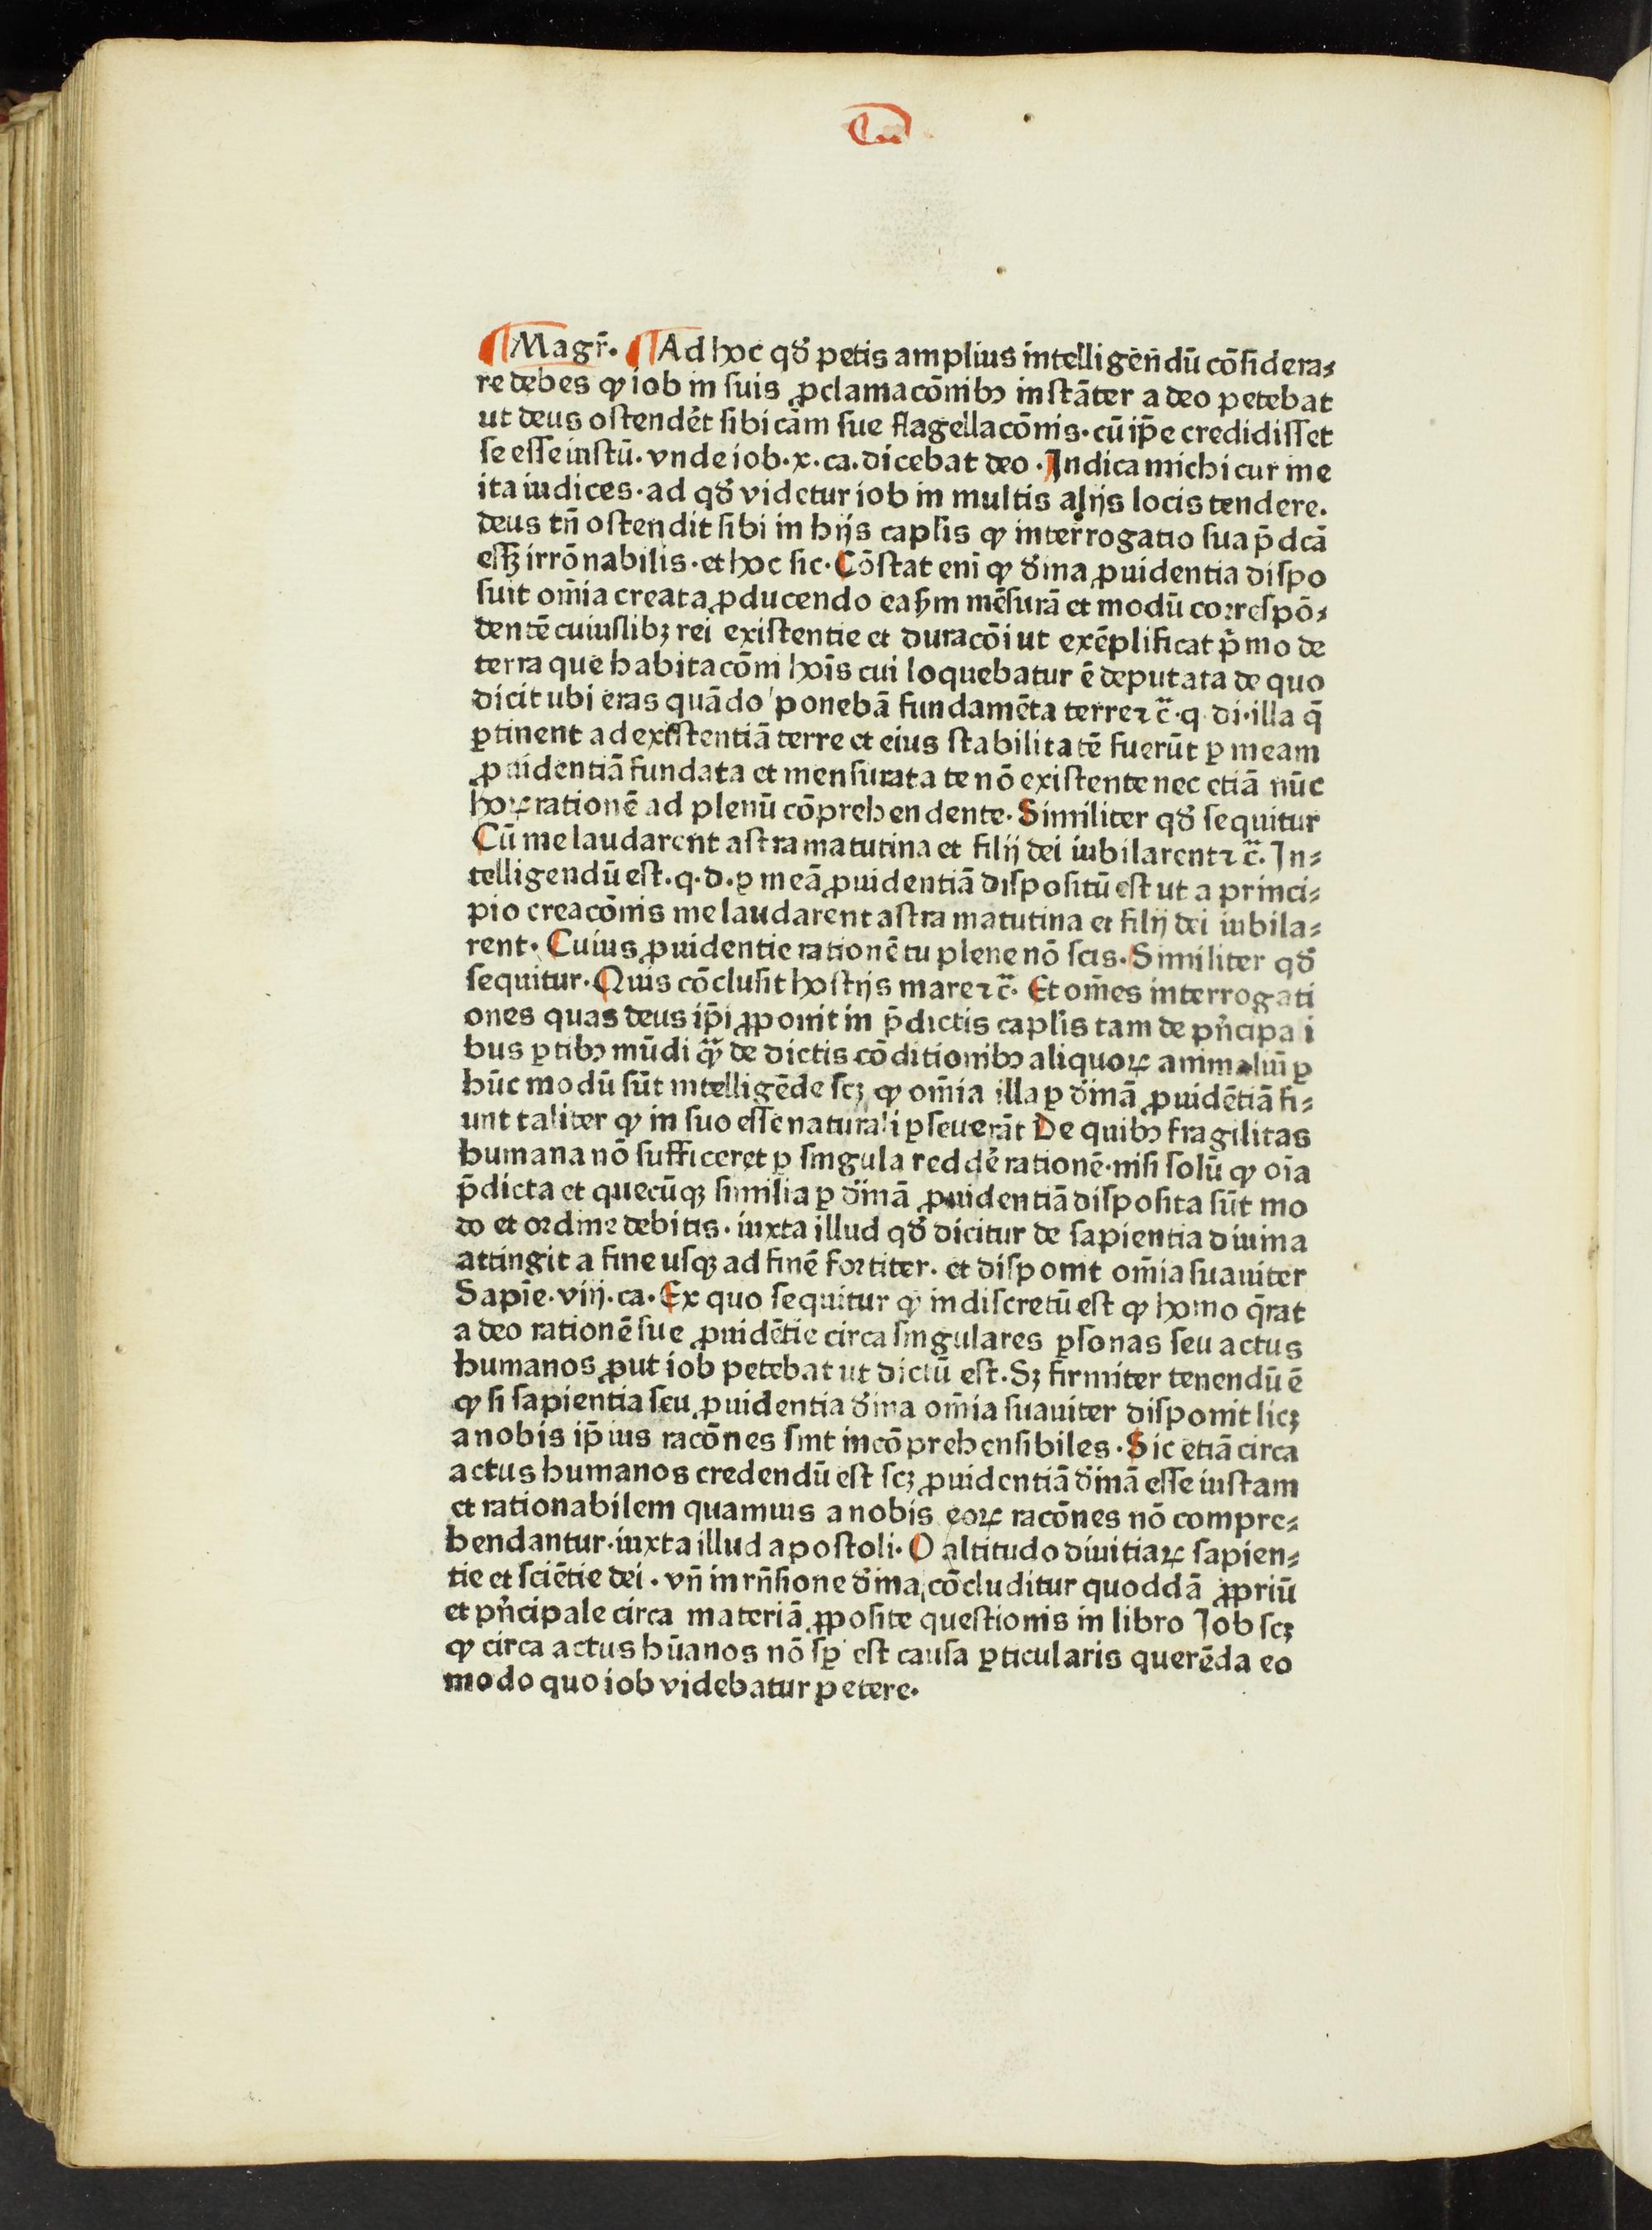 ¶Magr̄. ¶Ad hoc qđ petis amplius intelligēn̄dū cōſidera⸗
re debes ꝙ iob in ſuis ꝓclamacōnibꝰ inſtāter a deo petebat
ut deus oſtendēt ſibi cām ſue flagellacōnis. cū ip̄e credidiſſet
ſe eſſe iuſtū. vnde iob. x. ca. dicebat deo. Indica michi cur me
ita iudices. ad qđ videtur iob in multis alijs locis tendere.
deus tn̄ oſtendit ſibi in hijs caplīs ꝙ interrogatio ſua p̄dcā
eſſꝫ irrōnabilis. et hoc ſic. Cōſtat enī ꝙ dīna ꝓuidentia diſpo
ſuit om̄ia creata ꝓducendo ea ẜm mēſurā et modū correſpō⸗
dentē cuiuſlibꝫ rei exiſtentie et duracōi ut exēplificat p̄mo de
terra que habitacōni hoīs cui loquebatur ē deputata de quo
dicit ubi eras quādo ponebā fundamēta terre ⁊c̄. q. di. illa q̄
ꝑtinent ad exiſtentiā terre et eius ſtabilitatē fuerūt ꝑ meam
ꝓuidentiā fundata et menſurata te nō exiſtente nec etiā nūc
hoꝝ rationē ad plenū cōprehendente. Similiter qđ ſequitur
Cū me laudarent aſtra matutina et filij dei iubilarent ⁊c̄. In⸗
telligendū eſt. q. d. ꝑ meā ꝓuidentiā diſpoſitū eſt ut a princi⸗
pio creacōnis me laudarent aſtra matutina et filij dei iubila⸗
rent. Cuius ꝓuidentie rationē tu plene nō ſcis. Similiter qđ
ſequitur. Quis cōcluſit hoſtijs mare ⁊c̄. Et om̄es interrogati
ones quas deus ip̄i ꝓponit in p̄dictis caplīs tam de pn̄cipali
bus ꝑtibꝰ mūdi qͣ̄ꝫ de dictis cōditionibꝰ aliquoꝝ animaliū ꝑ
hūc modū ſūt intelligēde ſcꝫ ꝙ om̄ia illa ꝑ dīnā ꝓuidētiā fi⸗
unt taliter ꝙ in ſuo eſſe naturali ꝑſeuerāt De quibꝰ fragilitas
humana nō ſufficeret ꝑ ſingula reddē rationē. niſi ſolū ꝙ oīa
p̄dicta et quecūqꝫ ſimilia ꝑ dīnā ꝓuidentiā diſpoſita ſūt mo
do et ordine debitis. iuxta illud qđ dicitur de ſapientia diuina
attingit a fine uſqꝫ ad finē fortiter. et diſponit om̄ia ſuauiter
Sapīe. viij. ca. Ex quo ſequitur ꝙ indiſcretū eſt ꝙ homo q̄rat
a deo rationē ſue ꝓuidētie circa ſingulares ꝑſonas ſeu actus
humanos ꝓut iob petebat ut dictū eſt. Sꝫ firmiter tenendū ē
ꝙ ſi ſapientia ſeu ꝓuidentia dīna om̄ia ſuauiter diſponit licꝫ
a nobis ip̄ius racōnes ſint incōprehenſibiles. Sic etiā circa
actus humanos credendū eſt ſcꝫ ꝓuidentiā dīnā eſſe iuſtam
et rationabilem quamuis a nobis eoꝝ racōnes nō compre⸗
hendantur. iuxta illud apoſtoli. O altitudo diuitiaꝝ ſapien⸗
tie et ſciētie dei. vn̄ in rn̄ſione dīna cōcluditur quoddā ꝓpriū
et pn̄cipale circa materiā ꝓpoſite queſtionis in libro Job ſcꝫ
ꝙ circa actus hūanos nō ſꝑ eſt cauſa ꝑticularis querēda eo
modo quo iob videbatur petere.